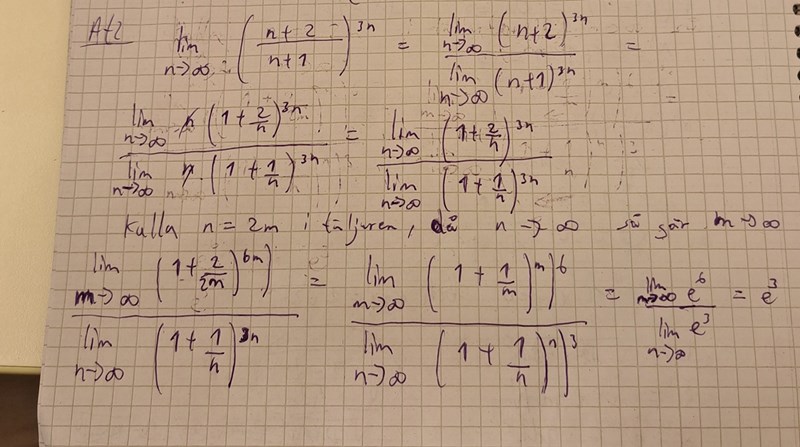 A12 lim n→∞ ((n+2)/(n+1))^3n = lim n→∞ (n+2)^3n / lim n→∞ (n+1)^3n =
lim n→∞ n (1+2/n)^3n / lim n→∞ n·(1+1/n)^3n = lim n→∞ (1+2/n)^3n / lim n→∞ (1+1/n)^3n
Kalla n=2m i täljaren, då n→∞ så går m→∞
lim m→∞ (1+2/2m)^6m) / lim n→∞ (1+1/n)^3n = lim m→∞ (1+1/m)^m)^6 / lim n→∞ (1+1/n)^n)^3 = lim m→∞ e^6 / lim n→∞ e^3 = e^3